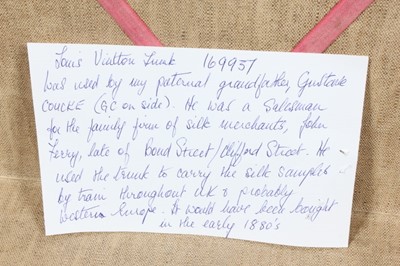 Louis Vuitton Trunk 169957
Was used by my paternal grandfather, Gustave
COUCKE (GC on side). He was a Salesman
for the family firm of silk merchants, John
Ferry, late of Bond Street/Clifford Street. He
used the trunk to carry the silk samples
by train throughout UK & probably
Western Europe. It would have been bought
in the early 1880's